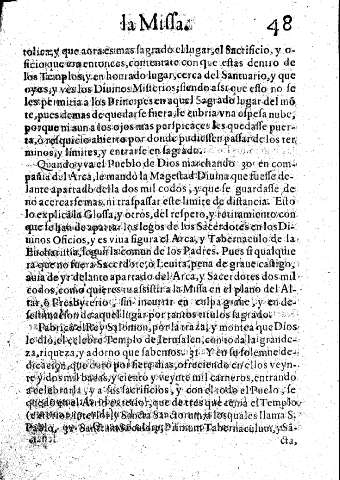 la Missa. 48
tolica: y que aora es mas sagrado el lugar, el Sacrificio, y o-
ficio que era entonces, contentate con que estàs dentro de
los Templos, y en honrado lugar, cerca del Santuario, y que
oyes, y ves los Diuinos Misterios; siendo assi que esto no se
les permitia a los Principes en aquel Sagrado lugar del mō
te, pues demas de quedarse fuera, le cubria vna espesa nube,
porque ni aun a los ojos mas perspicaces les quedasse puer-
ta, ò resquicio abierto por donde pudiessen passar de los ter
minos, y limites, y entrarse en lo sagrado.
Quando yva el Pueblo de Dios marchando 30 en com-
pañia del Arca, le mandò la Magestad Diuina que fuesse de-
lante apartado della dos mil codos, y que se guardasse de
no acercarse mas, ni traspassar este limite de distancia. Esto
lo explica la Glossa, y otros, del respeto, y retiramiento con
que se han de apartar los legos de los Sacerdotes en los Di-
uinos Oficios, y es viua figura el Arca, y Tabernaculo de la
Eucharistia, segun la comun de los Padres. Pues si qualquie
ra que no fuera Sacerdote, ò Leuita, pena de graue castigo,
auia de yr delante apartado del Arca, y Sacerdotes dos mil
codos, como quieres tu assistir a la Missa en el plano del Al-
tar, ò Presbyterio, sin incurrir en culpa graue, y en de-
sestimacion de aquel lugar por tantos titulos sagrado.
Fabricò el Rey Salomon, por la traza, y montea que Dios
le diò, el celebre Templo de Ierusalen, con toda la grande-
za, riqueza, y adorno que sabemos. 31 Y en su solemne de-
dicacion, que durò por siete dias, ofreciendo en ellos veyn-
te y dos mil bacas, y ciento y veynte mil carneros, entrando
a celebrarla, y a sus sacrificios, y con el todo el Pueblo, se
quedò en el Atrio exterior, que de tres que tenia el Templo
(exterior, interior, y Sancta Sanctorum, a los quales llama S.
Pablo, Tabernaculum, y Sā-
cta,